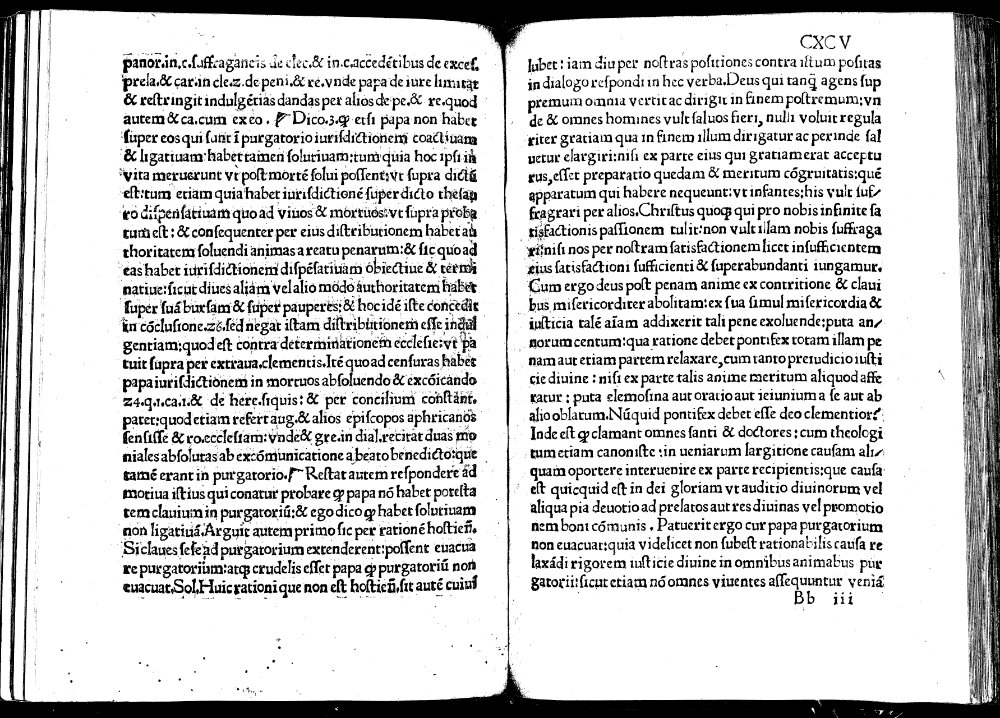 panor.in.c.suffraganeis de elec.& in.c.accedētibus de exces.
prela.& car.in cle.2.de peni.& re.vnde papa de iure limitat
& restringit indulgētias dandas per alios de pe.& re.quod
autem & ca.cum ex eo. Dico.3.ꝙ etsi papa non habet
super eos qui sunt ī purgatorio iurisdictionem coactiuam
& ligatiuam habet tamen solutiuam:tum quia hoc ipsi in
vita meruerunt vt post mortē solui possent:vt supra dictū
est:tum etiam quia habet iurisdictionē super dicto thesau
ro dispensatiuam quo ad viuos & mortuos:vt supra proba
tum est: & consequenter per eius distributionem habet au
thoritatem soluendi animas a reatu penarum:& sic quo ad
eas habet iurisdictionem dispēsatiuam obiectiue & termi
natiue:sicut diues aliam vel alio modo authoritatem habet
super suā bursam & super pauperes:& hoc idē iste concedit
in cōclusione.26.sed negat istam distributionem esse indul
gentiam:quod est contra determinationem ecclesie:vt pa
tuit supra per extraua.clementis.Itē quo ad censuras habet
papa iurisdictionem in mortuos absoluendo & excōicando
24.q.1.ca.1.& de here.si quis: & per concilium constant.
patet:quod etiam refert aug.& alios episcopos aphricanos
sensisse & ro.ecclesiam:vnde & gre.in dial.recitat duas mo
niales absolutas ab excōmunicatione a beato benedicto:que
tamē erant in purgatorio. Restat autem respondere ad
motiua istius qui conatur probare ꝙ papa nō habet potesta
tem clauium in purgatoriū:& ego dico ꝙ habet solutiuam
non ligatiuā.Arguit autem primo sic per rationē hostieñ.
Si claues sese ad purgatorium extenderent:possent euacua
re purgatorium:atqꝫ crudelis esset papa ꝙ purgatoriū non
euacuat.Sol.Huic rationi que non est hostieñ.sit autē cuius
CXCV
lubet: iam diu per nostras positiones contra istum positas
in dialogo respondi in hec verba.Deus qui tanqꝫ agens su
premum omnia vertit ac dirigit in finem postremum:vn
de & omnes homines vult saluos fieri, nulli voluit regula
riter gratiam qua in finem illum dirigatur ac perinde sal
uetur elargiri:nisi ex parte eius qui gratiam erat acceptu
rus,esset preparatio quedam & meritum cōgruitatis:quē
apparatum qui habere nequeunt:vt infantes:his vult suf/
fragrari per alios.Christus quoqꝫ qui pro nobis infinite sa
tisfactionis passionem tulit:non vult illam nobis suffraga
ri:nisi nos per nostram satisfactionem licet insufficientem
eius satisfactioni sufficienti & superabundanti iungamur.
Cum ergo deus post penam anime ex contritione & claui
bus misericorditer abolitam:ex sua simul misericordia &
iusticia talē aīam addixerit tali pene exoluende:puta an/
norum centum:qua ratione debet pontifex totam illam pe
nam aut etiam partem relaxare,cum tanto preiudicio iusti
cie diuine: nisi ex parte talis anime meritum aliquod affe
ratur: puta elemosina aut oratio aut ieiunium a se aut ab
alio oblatum.Nūquid pontifex debet esse deo clementior?
Inde est ꝙ clamant omnes santi & doctores: cum theologi
tum etiam canoniste :in ueniarum largitione causam ali/
quam oportere interuenire ex parte recipientis:que causa
est quicquid est in dei gloriam vt auditio diuinorum vel
aliqua pia deuotio ad prelatos aut res diuinas vel promotio
nem boni cōmunis. Patuerit ergo cur papa purgatorium
non euacuat:quia videlicet non subest rationabilis causa re
laxādi rigorem iusticie diuine in omnibus animabus pur
gatorii:sicut etiam nō omnes viuentes assequuntur veniā
Bb iii